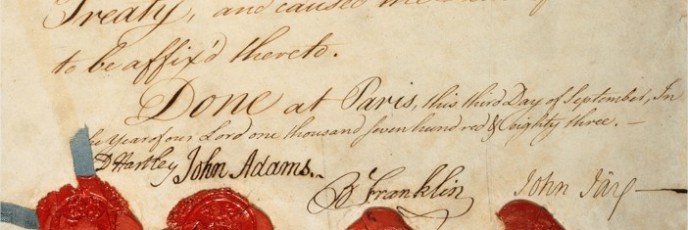 Treaty, and caused the
to be affix'd thereto.
Done at Paris, this third Day of September, In
Year of our Lord one thousand seven hundred & eighty three. —
D Hartley John Adams. B Franklin John Jay —